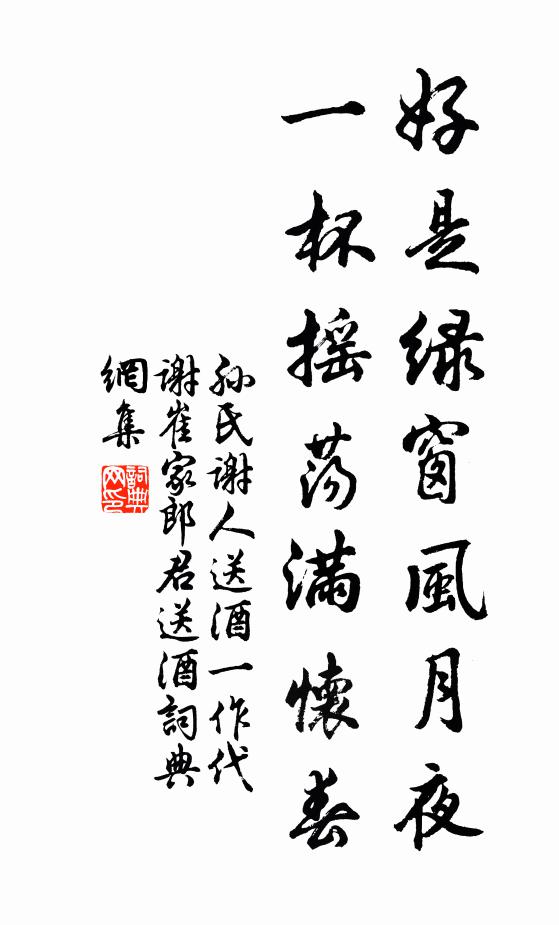 好是綠窗風月夜
一杯摇荡滿懷春
孫氏謝人送酒一作代
謝崔家郎君送酒詞典
網集
詞典
网印